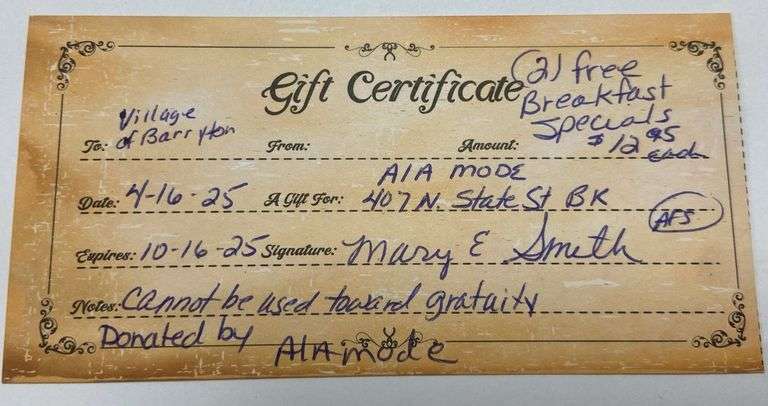 Gift Certificate
(2) free
Breakfast
Specials
$12 95
each
Village
To: of Barryton From: Amount:
A/A MODE
Date: 4-16-25 A Gift For: 407 N. State St BK
AFS
Expires: 10-16-25 Signature: Mary E Smith
Notes: Cannot be used toward gratuity
Donated by AlAmode